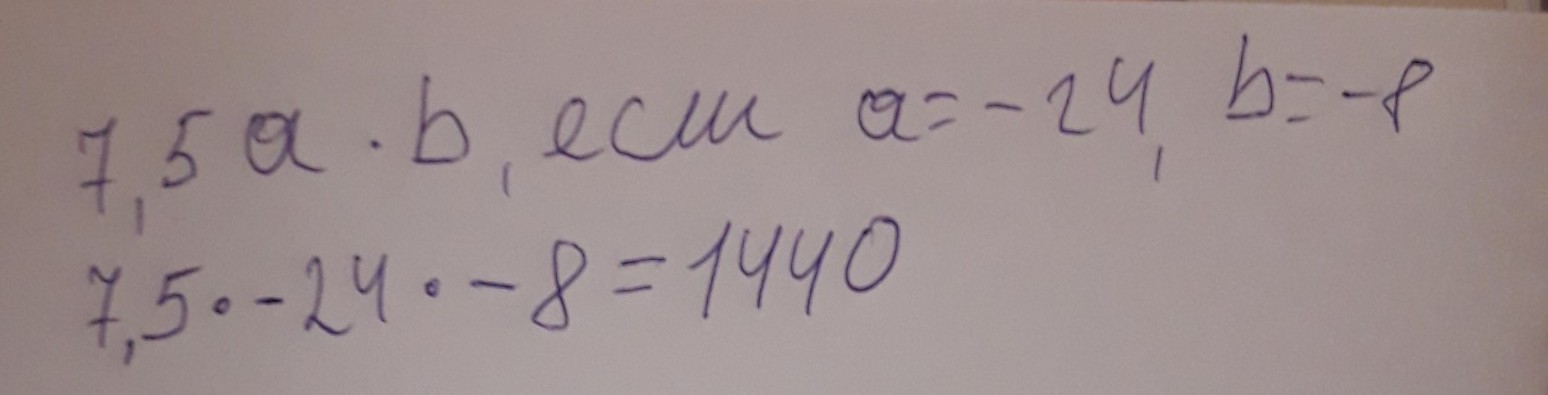 7,5a · b, если a=-24, b=-8
7,5·-24·-8=1440